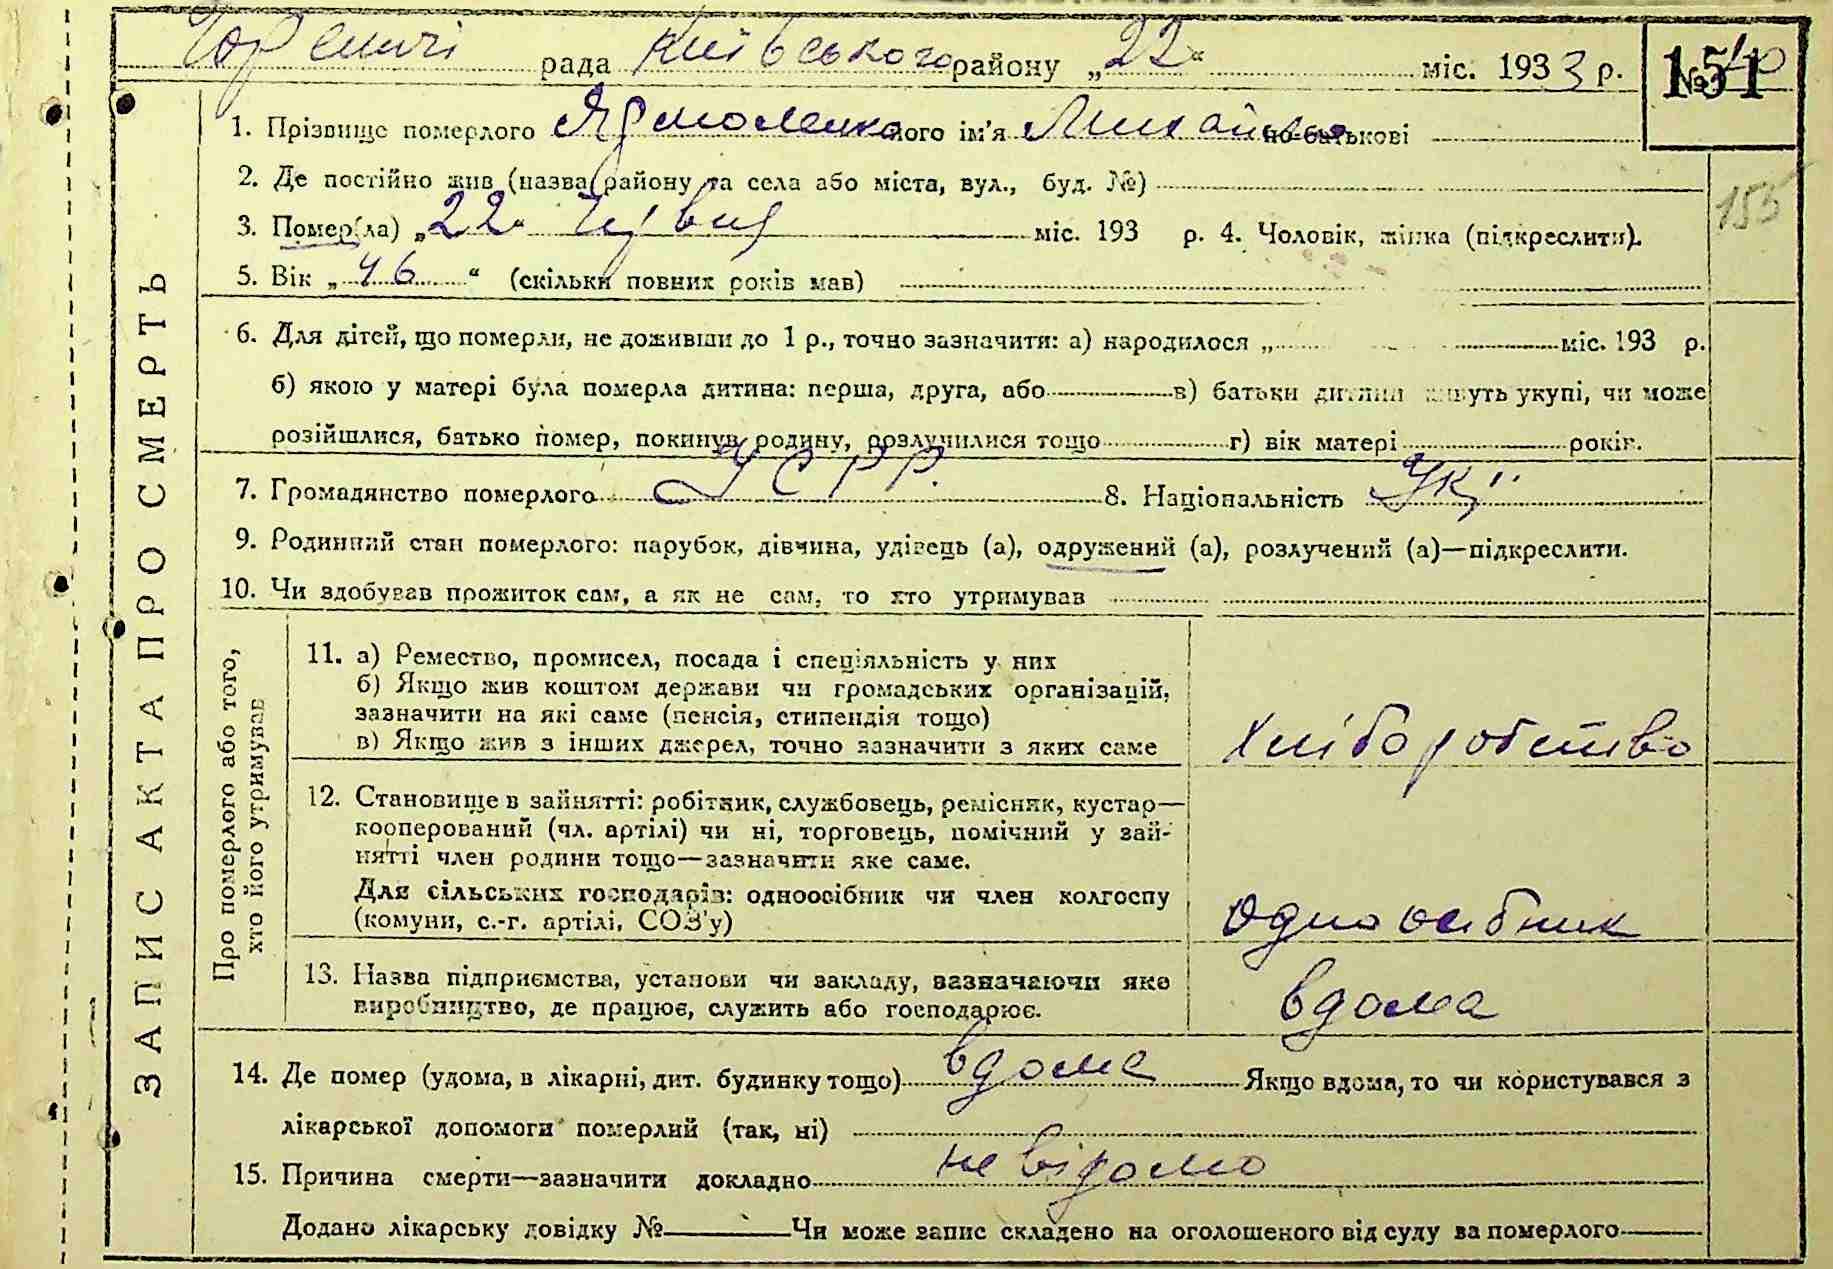 Горєничі рада Київського району „22“ міс. 1933 р. № 151
1. Прізвище померлого Ярмоленко його ім'я Михайло по-батькові
2. Де постійно жив (назва району та села або міста, вул., буд. №)
153
3. Помер(ла) „22“ червня міс. 193 р. 4. Чоловік, жінка (підкреслити).
5. Вік „46“ (скільки повних років мав)
6. Для дітей, що померли, не доживши до 1 р., точно зазначити: а) народилося „ міс. 193 р.
б) якою у матері була померла дитина: перша, друга, або в) батьки дитини живуть укупі, чи може
розійшлися, батько помер, покинув родину, розлучилися тощо г) вік матері років.
7. Громадянство померлого УСРР. 8. Національність Укр
9. Родинний стан померлого: парубок, дівчина, удівець (а), одружений (а), розлучений (а)—підкреслити.
10. Чи здобував прожиток сам, а як не сам, то хто утримував
ЗАПИС АКТА ПРО СМЕРТЬ
Про померлого або того,
хто його утримував
11. а) Ремество, промисел, посада і спеціяльність у них
б) Якщо жив коштом держави чи громадських організацій,
зазначити на які саме (пенсія, стипендія тощо)
в) Якщо жив з інших джерел, точно зазначити з яких саме
хліборобство
12. Становище в зайнятті: робітник, службовець, ремісник, кустар—
кооперований (чл. артілі) чи ні, торговець, помічний у зай-
нятті член родини тощо—зазначити яке саме.
Для сільських господарів: одноосібник чи член колгоспу
(комуни, с.-г. артілі, СОЗ'у)
одноосібник
13. Назва підприємства, установи чи закладу, зазначаючи яке
виробництво, де працює, служить або господарює.
вдома
14. Де помер (удома, в лікарні, дит. будинку тощо) вдома Якщо вдома, то чи користувався з
лікарської допомоги померлий (так, ні)
15. Причина смерти—зазначити докладно невідомо
Додано лікарську довідку № Чи може запис складено на оголошеного від суду за померлого